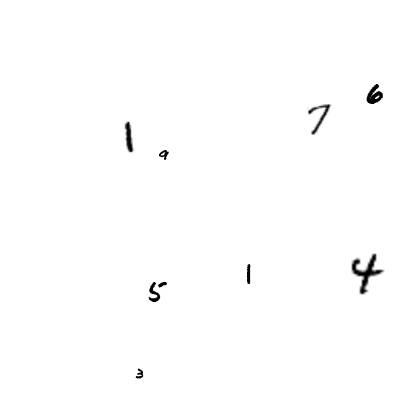 6
7
1
9
1
4
5
3